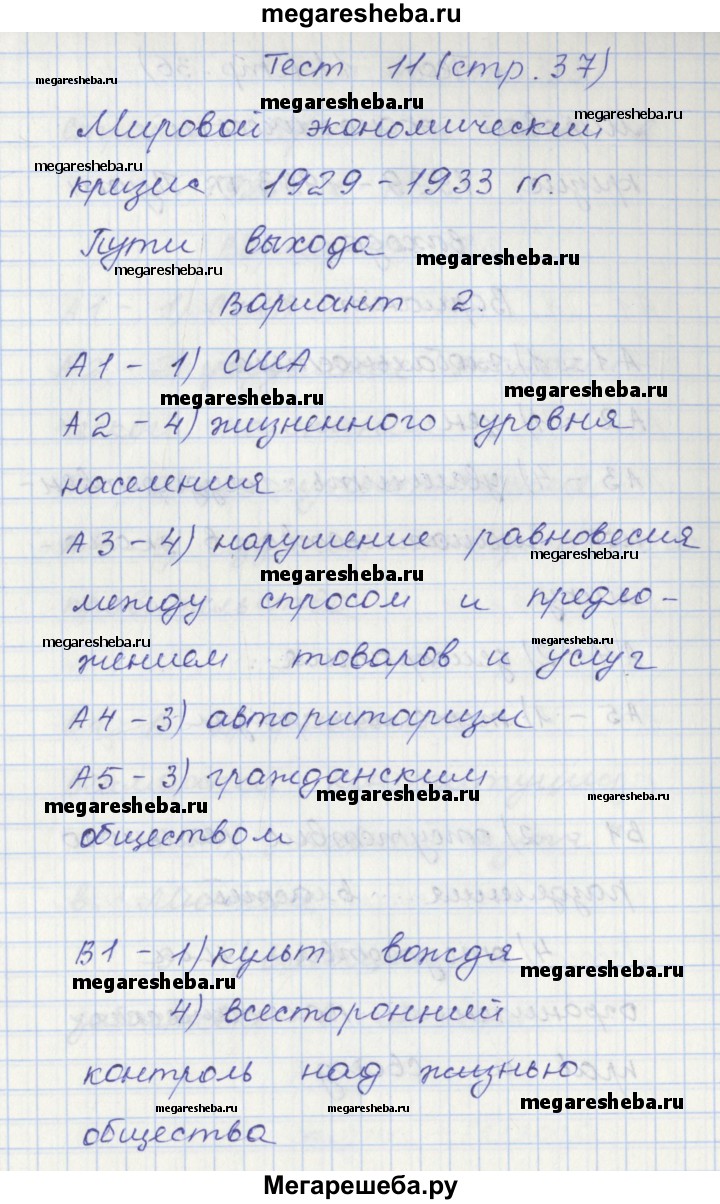 megaresheba.ru
Тест 11 (стр. 37)
megaresheba.ru
megaresheba.ru
megaresheba.ru
Мировой экономический
megaresheba.ru
кризис 1929-1933 гг.
Пути выхода
megaresheba.ru
megaresheba.ru
Вариант 2.
А1 - 1) США
megaresheba.ru
megaresheba.ru
А2 - 4) жизненного уровня
населения
А3 - 4) нарушение равновесия
megaresheba.ru
megaresheba.ru
между спросом и предло-
megaresheba.ru
megaresheba.ru
жением товаров и услуг
А4 - 3) авторитаризм
А5 - 3) гражданским
megaresheba.ru
megaresheba.ru
megaresheba.ru
обществом
В1 - 1) культ вождя
megaresheba.ru
megaresheba.ru
4) всесторонний
контроль над жизнью
megaresheba.ru
megaresheba.ru
megaresheba.ru
общества
Мегарешеба.ру